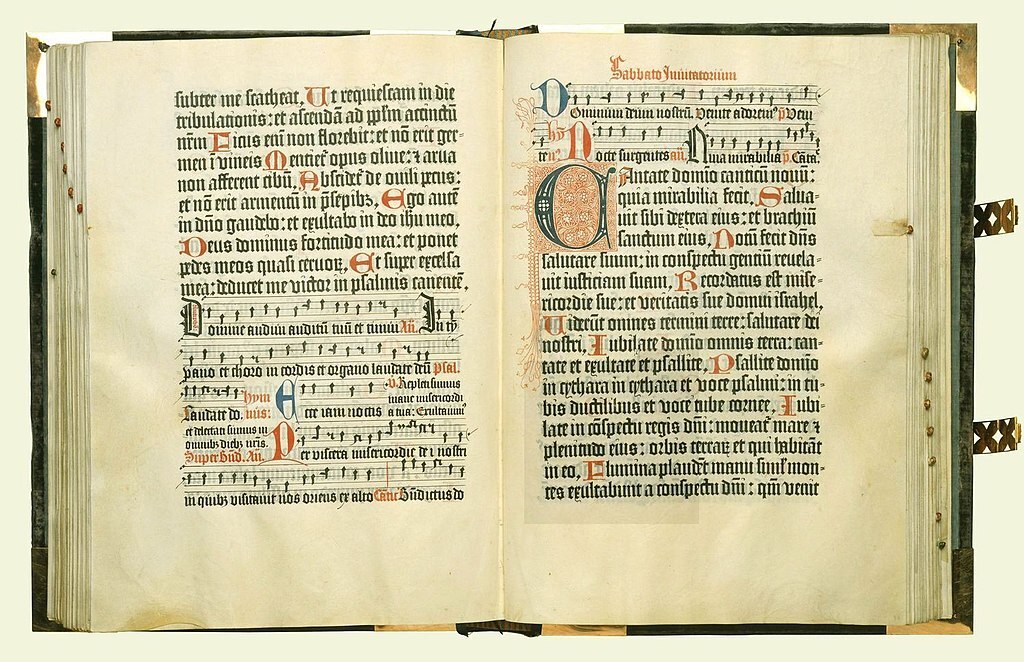 subter me scateat. Ut requiescam in die
tribulationis: et ascendā ad pplm̄ accinctū
nr̄m Ficus eni non florebit: et nō erit ger-
men ī vineis Mentiet̄ opus olive: ⁊ arva
non afferent cibū. Abscidet̄ de ovili pecus:
et nō erit armentū in p̄sepibꝫ. Ego autē
in dn̄o gaudebo: et exultabo in deo ihū meo.
Deus dominus fortitudo mea: et ponet
pedes meos quasi cervoꝝ. Et super excelsa
mea: deducet me victor in psalmis canentē.
Domine audivi auditū tuū et timui An̄. In tȳ
pano et choro in cordis et organo laudate deū Psal.
Laudate do. hym nus: Ecce iam noctis
V. Repleti sumus
mane misericordi
a tua: Exultavim⁹
et delectati sumus in
omnibꝫ diebꝫ nr̄is.
Sup̄ Bn̄d. An̄. Per viscera misericordie dī nostri
in quibꝫ visitavit nos oriens ex alto Cātic̄ Bn̄dictus do
Sabbato Invitatorium
Dominum deum nostrū. Venite adorem⁹ p̄ Veni
te. hȳ n⁹. Nocte surgentes an̄. Quia mirabilia p̄. Cāta.
Cantate domīo canticū novū:
quia mirabilia fecit. Salva-
uit sibi dextera eius: et brachiū
sanctum eius. Notū fecit dn̄s
salutare suum: in conspectu gentiū revela-
vit iusticiam suam. Recordatus est mise-
ricordie sue: et veritatis sue domui israhel.
Viderūt omnes termini terre: salutare dei
nostri. Iubilate domīo omnis terra: can-
tate et exultate et psallite. Psallite domīo
in cythara in cythara et voce psalmi: in tu-
bis ductilibus et voce tube cornee. Iubi-
late in cōspectu regis dn̄i: moveat̄ mare ⁊
plenitudo eius: orbis terraꝝ et qui habitāt
in eo. Flumina plaudēt manu simul mon-
tes exultabunt a conspectu dn̄i: qm̄ venit